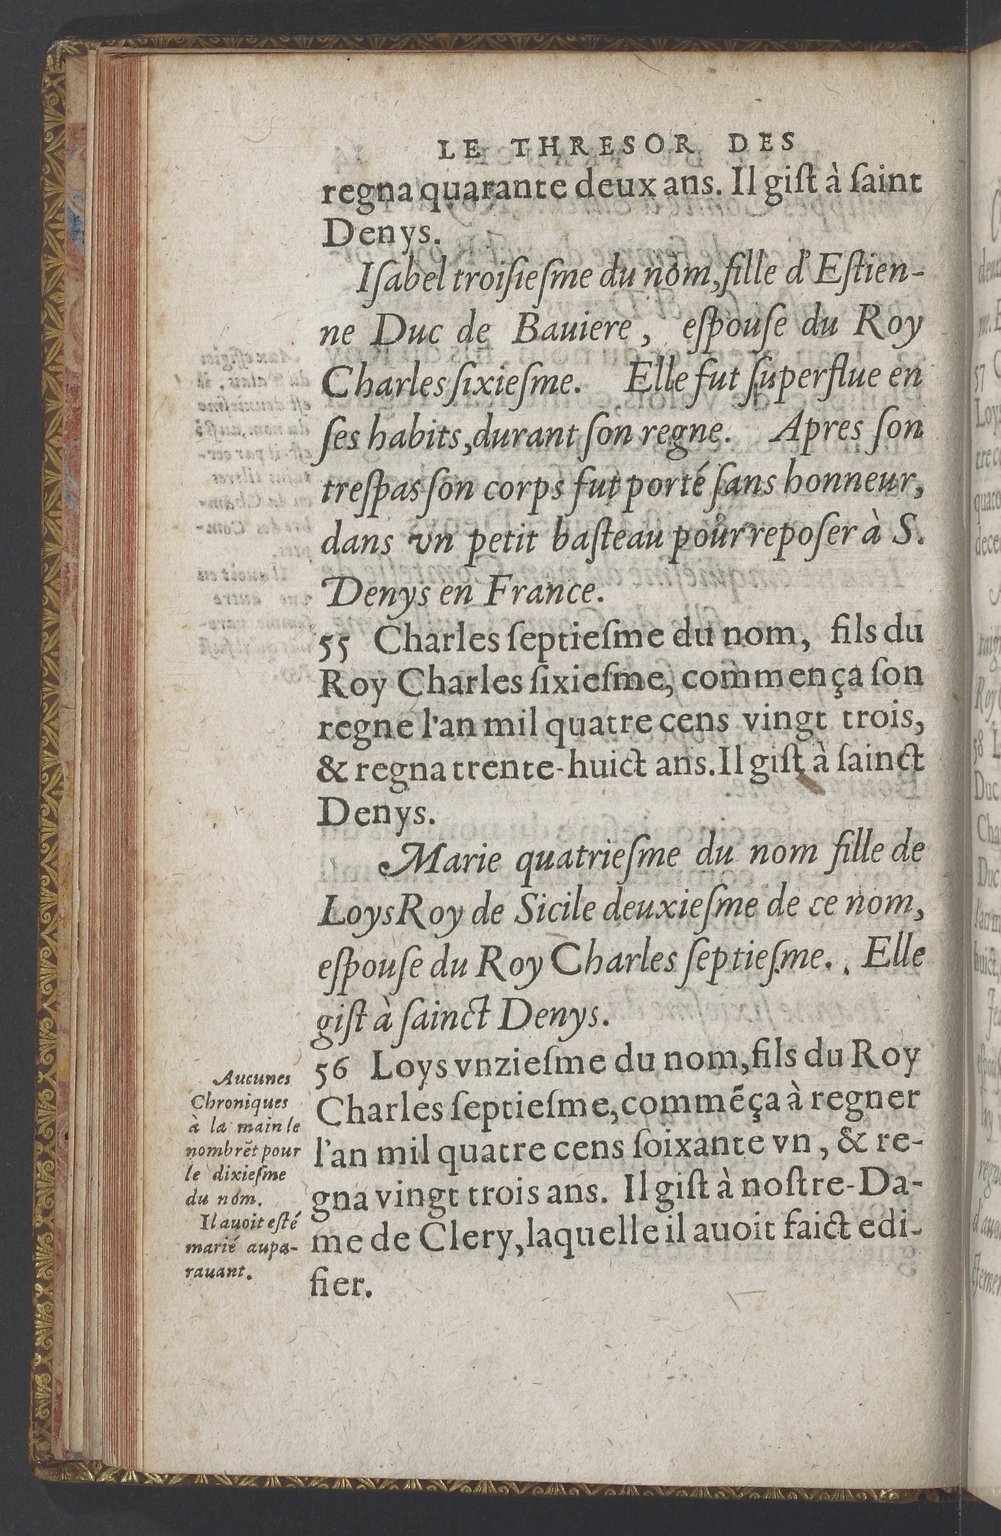 LE THRESOR DES
regna quarante deux ans. Il giſt à ſaint
Denys.
Iſabel troiſieſme du nom, fille d'Eſtien-
ne Duc de Bauiere, eſpouſe du Roy
Charles ſixieſme. Elle fut ſuperflue en
ſes habits, durant ſon regne. Apres ſon
treſpas ſon corps fut porté ſans honneur,
dans vn petit baſteau pour repoſer à S.
Denys en France.
55 Charles ſeptieſme du nom, fils du
Roy Charles ſixieſme, commença ſon
regne l'an mil quatre cens vingt trois,
& regna trente-huict ans. Il giſt à ſainct
Denys.
Marie quatrieſme du nom fille de
Loys Roy de Sicile deuxieſme de ce nom,
eſpouſe du Roy Charles ſeptieſme. Elle
giſt à ſainct Denys.
56 Loys vnzieſme du nom, fils du Roy
Charles ſeptieſme, commẽça à regner
l'an mil quatre cens ſoixante vn, & re-
gna vingt trois ans. Il giſt à noſtre-Da-
me de Clery, laquelle il auoit faict edi-
fier.
Aucunes
Chroniques
à la main le
nombrẽt pour
le dixieſme
du nom.
Il auoit eſté
marié aupa-
rauant.